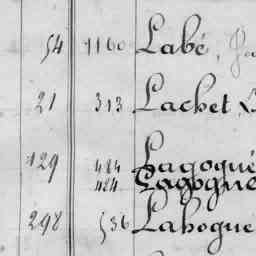 54 1160 Labé,
21 313 Lachet,
129 484 Lagogué
484 Lagogue
298 536 Lahogue